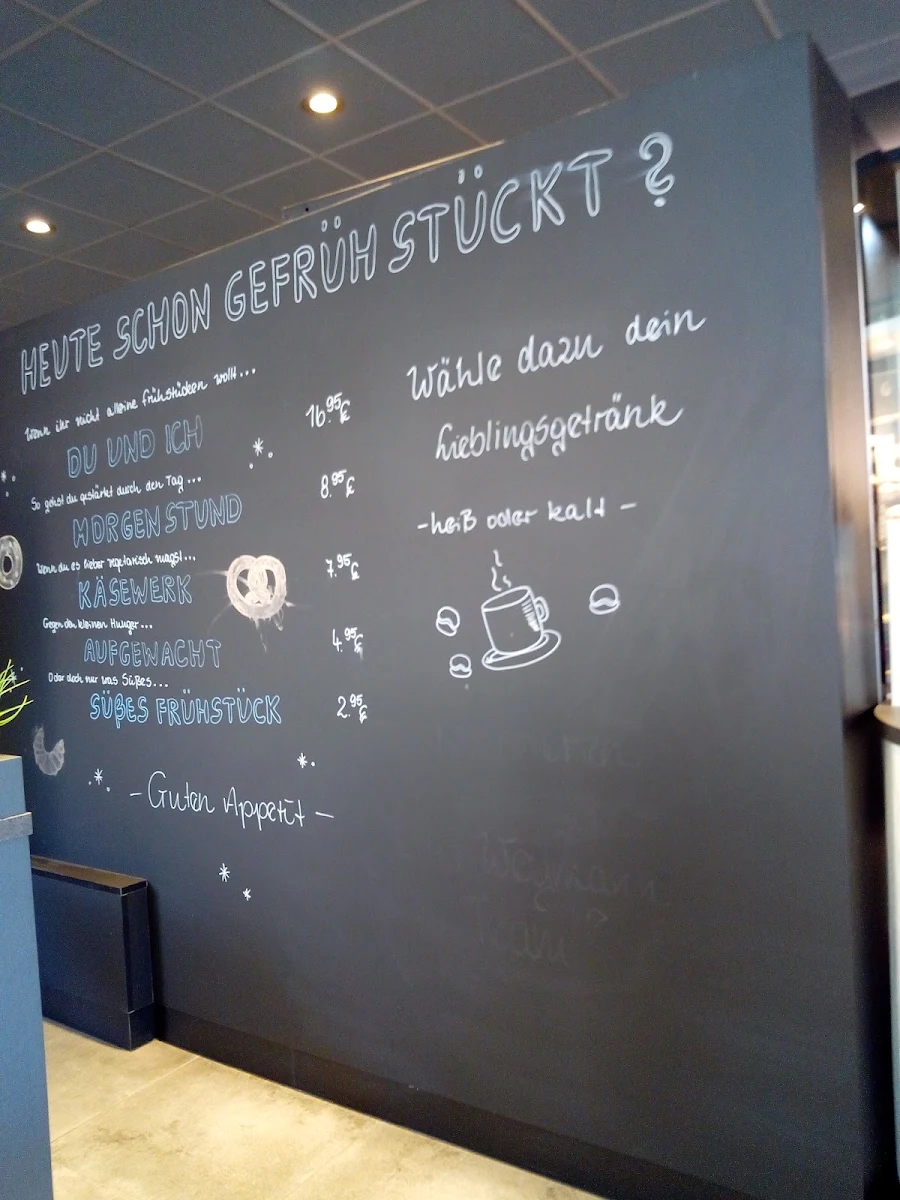 HEUTE SCHON GEFRÜHSTÜCKT ?
Wenn ihr nicht alleine frühstücken wollt...
DU UND ICH 16.95€
So gehst du gestärkt durch den Tag...
MORGENSTUND 8.95€
Wenn du es lieber vegetarisch magst...
KÄSEWERK 7.95€
Gegen den kleinen Hunger...
AUFGEWACHT 4.95€
Oder doch nur was Süßes...
SÜßES FRÜHSTÜCK 2.95€
- Guten Appetit -
Wähle dazu dein
Lieblingsgetränk
- heiß oder kalt -
Team